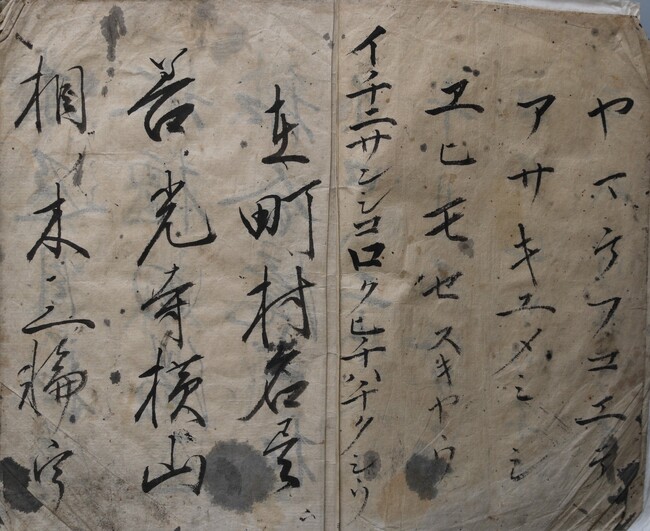 ヤマケフコエテ
アサキユメミシ
ヱヒモセスキヤウ
イチニサンシコロクヒチハチクシウ
在町村名尽
善光寺横山
相木三輪宇